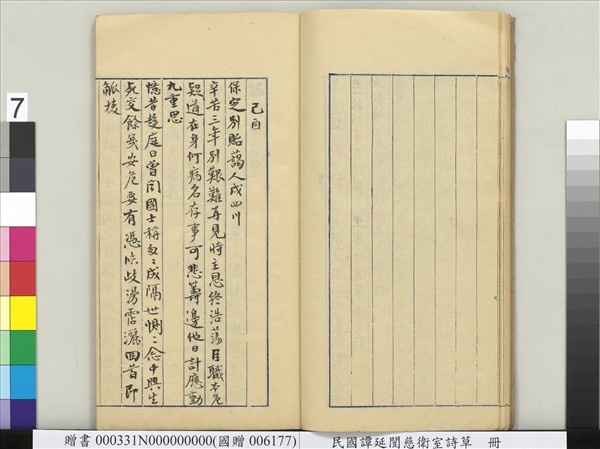 己酉
保定別貽藹人戍四川
辛苦三年別艱難再見時主恩終浩蕩臣職本危
疑道在身何病名存事可悲籌邊他日計應動
九重思
憶昔趨庭日曾同國士稱匆〻成隔世惻〻念中興生
死交餘幾安危要有憑臨歧霑灑回首即
觚棱
7
贈書 000331N000000000(國贈 006177)
民國譚延闓慈衛室詩草 冊